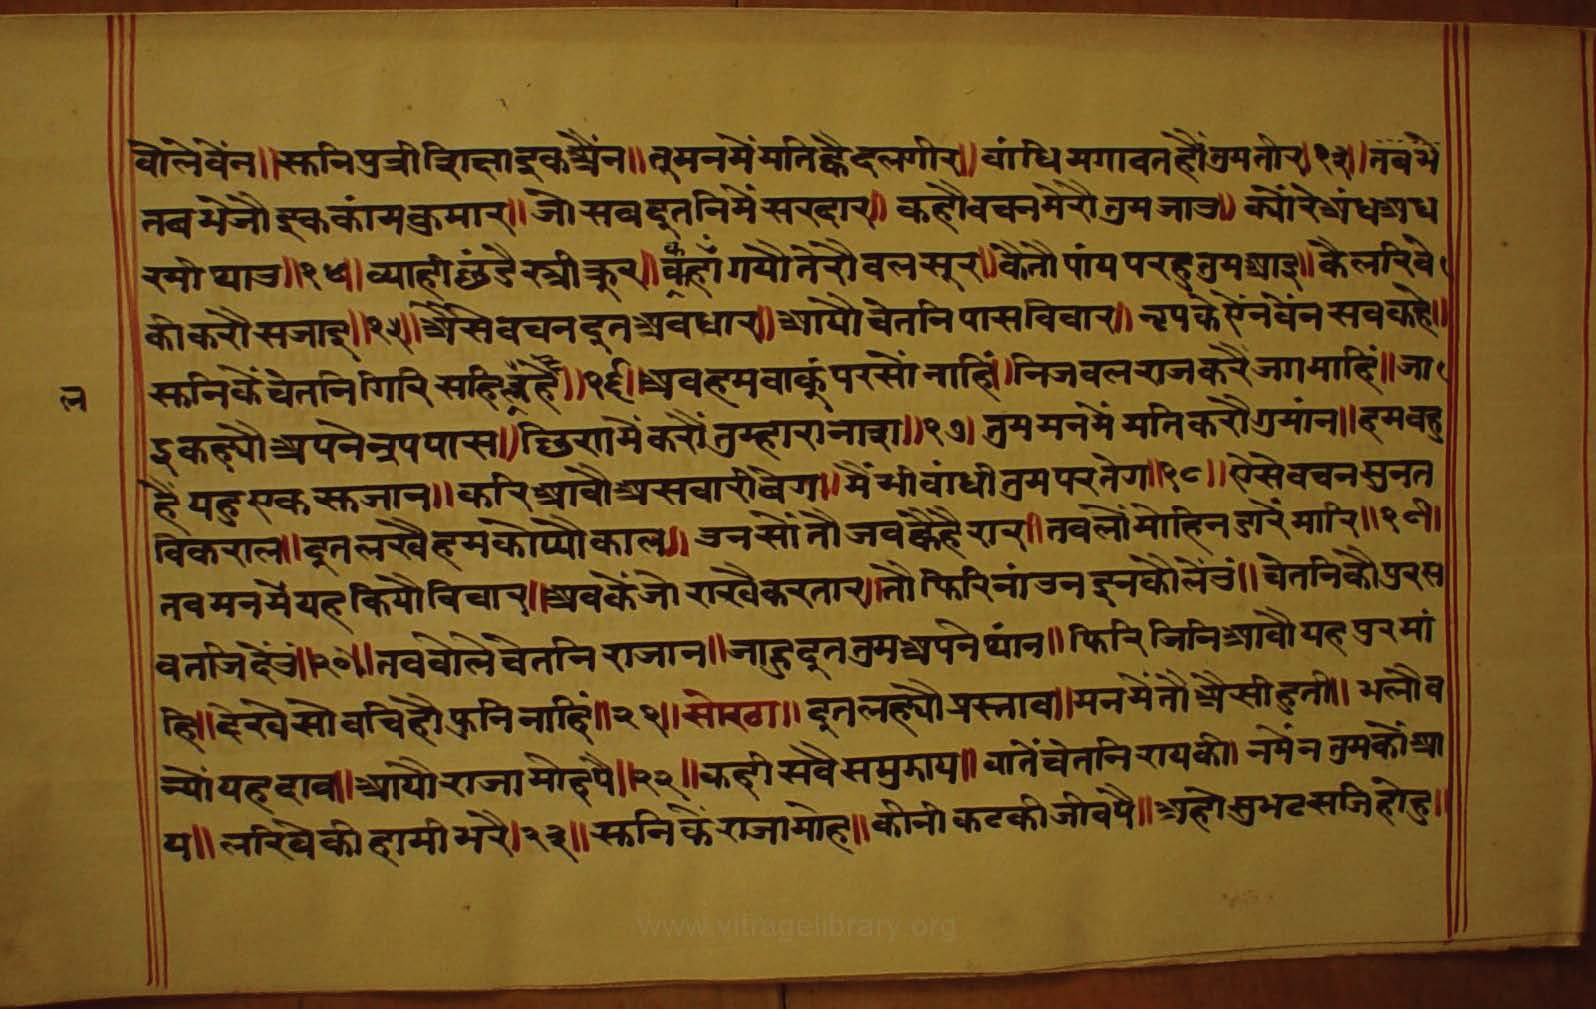 बोले बेंन॥ सुनि पुत्री शिक्षा इक अैंन॥ तू मन में मति ह्वै दलगीर॥ बांधि मगावत हौं तुम तीर॥१३॥ तब भे
तब भेजौ इक कांम कुमार॥ जो सब दूतनि में सरदार॥ कहौ वचन मेरौ तुम जाउ॥ क्यों रे अंध अध
रमी थाउ॥१४॥ व्याही छंडै स्त्री कूर॥ कहाँ गयौ तेरौ वल सूर॥ कैतौ पांय परहु तुम आइ॥ कै लरिवे
की करौ सजाइ॥१५॥ अैसे वचन दूत अवधार॥ आयौ चेतनि पास विचार॥ नृप के ऐंन बेंन सब कहे॥
सुनि कें चेतनि गिरि सहि रहे॥१६॥ अब हम वाकूं परसों नाहिं॥ निज वल राज करै जग माहिं॥ जा
इ कह्यौ अपने नृप पास॥ छिण में करौं तुम्हारा नाश॥१७॥ तुम मन में मति करौ गुमांन॥ हम बहु
हैं यहु एक सुजान॥ करि आवौ असवारी बेग॥ मैं भी बांधी तुम पर तेग॥१८॥ ऐसे वचन सुनत
विकराल॥ दूत लखै हम कोप्यौ काल॥ उन सों तौ जब ह्वैहै रार॥ तब लों मोहि न डारें मारि॥१९॥
तब मन में यह कियौ विचार॥ अब कें जो राखै करतार॥ तौ फिरि नां उन इन कौ लेंउं॥ चेतनि कौ पुर स
व तजि देंउं॥२०॥ तव बोले चेतनि राजान॥ जाहु दूत तुम अपने थांन॥ फिरि जिनि आवौ यह पुर मां
हि॥ देखे सो वचिहौ फुनि नाहिं॥२१॥ सोरठा॥ दूत लह्यौ प्रस्ताव॥ मन में तौ अैसी हुती॥ भलौ व
न्यों यह दाव॥ आयौ राजा मोह पै॥२२॥ कही सबै समुझाय॥ बातें चेतनि राय की॥ नमें न तुम कों आ
य॥ लरिवे की हामी भरै॥२३॥ सुनि कें राजा मोह॥ कीनी कटकी जीव पै॥ अहो सुभट सजि होहु॥
ल
www.vitragelibrary.org